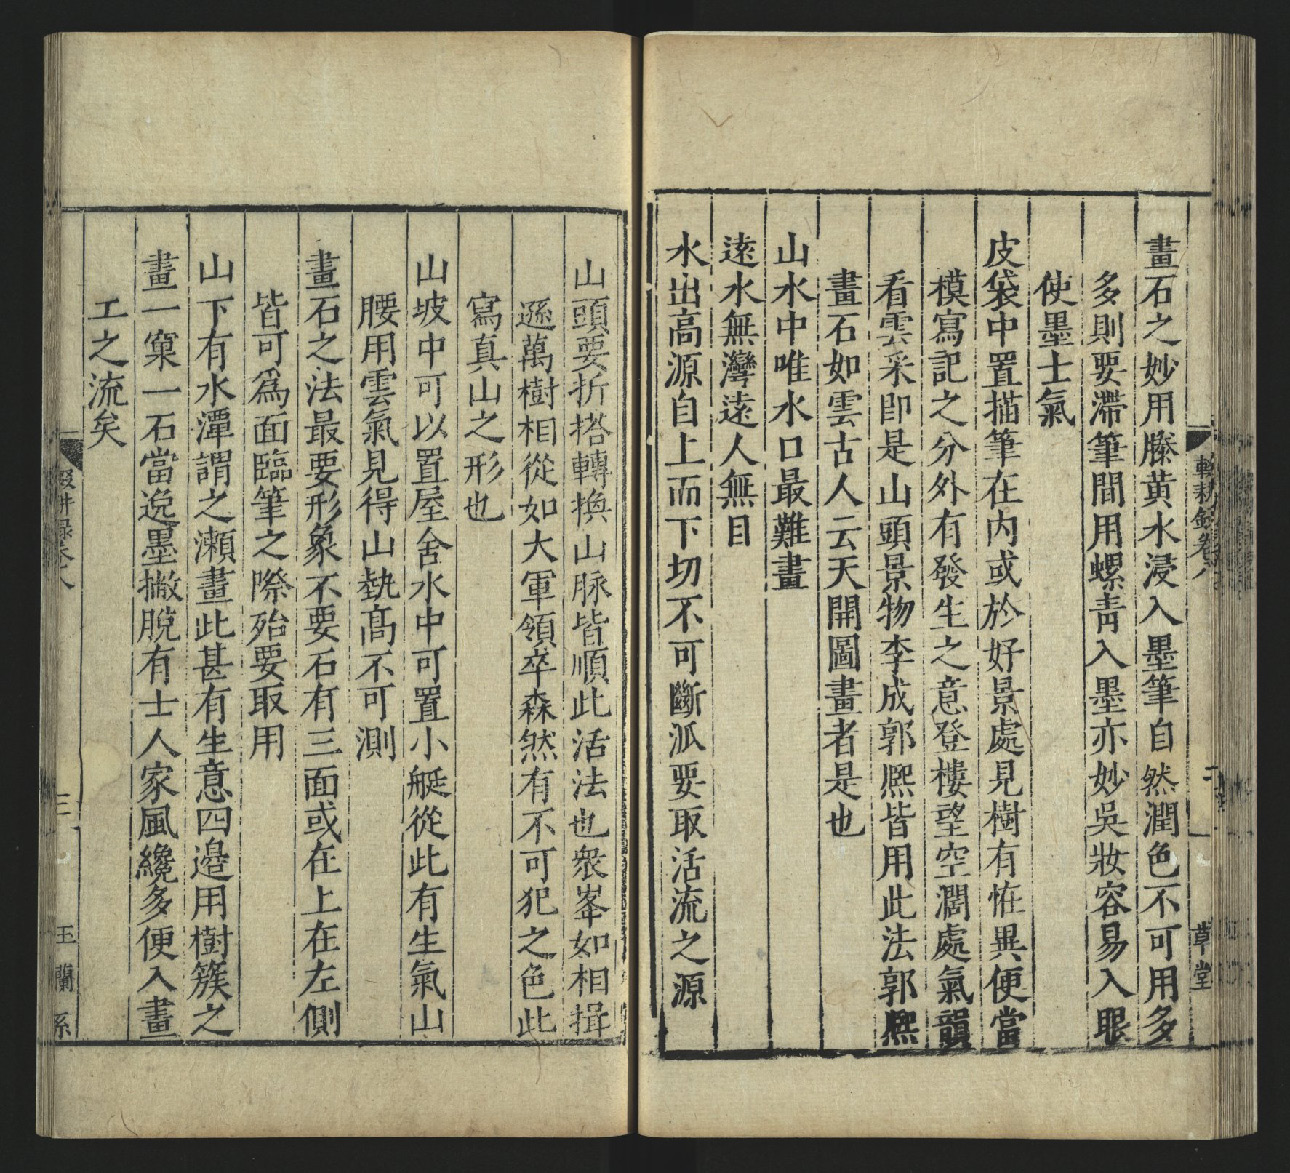 畫石之妙用㯽黃水浸入墨筆自然潤色不可用多
多則要滯筆間用螺靑入墨亦妙吳妝容易入眼
使墨士氣
皮袋中置描筆在內或於好景處見樹有恠異便當
模寫記之分外有發生之意登樓望空濶處氣韻
看雲采卽是山頭景物李成郭熈皆用此法郭熈
畫石如雲古人云天開圖畫者是也
山水中唯水口最難畫
遠水無灣遠人無目
水出高源自上而下切不可斷泒要取活流之源
山頭要折搭轉換山脉皆順此活法也衆峯如相揖
遜萬樹相從如大軍領卒森然有不可犯之色此
寫真山之形也
山坡中可以置屋舍水中可置小艇從此有生氣山
腰用雲氣見得山勢髙不可測
畫石之法最要形象不要石有三面或在上在左側
皆可爲面臨筆之際殆要取用
山下有水潭謂之瀨畫此甚有生意四邉用樹簇之
畫一窠一石當逸墨撇脫有士人家風纔多便入畫
工之流矣
輟耕錄卷八
草堂
輟耕録卷八
三
玉蘭